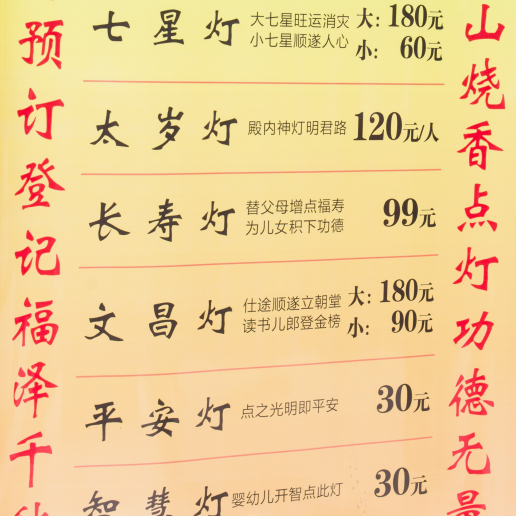 预订登记福泽千秋
七星灯
大七星旺运消灾
小七星顺遂人心
大：180元
小：60元
太岁灯
殿内神灯明君路
120元/人
长寿灯
替父母增点福寿
为儿女积下功德
99元
文昌灯
仕途顺遂立朝堂
读书儿郎登金榜
大：180元
小：90元
平安灯
点之光明即平安
30元
智慧灯
婴幼儿开智点此灯
30元
山烧香点灯功德无量